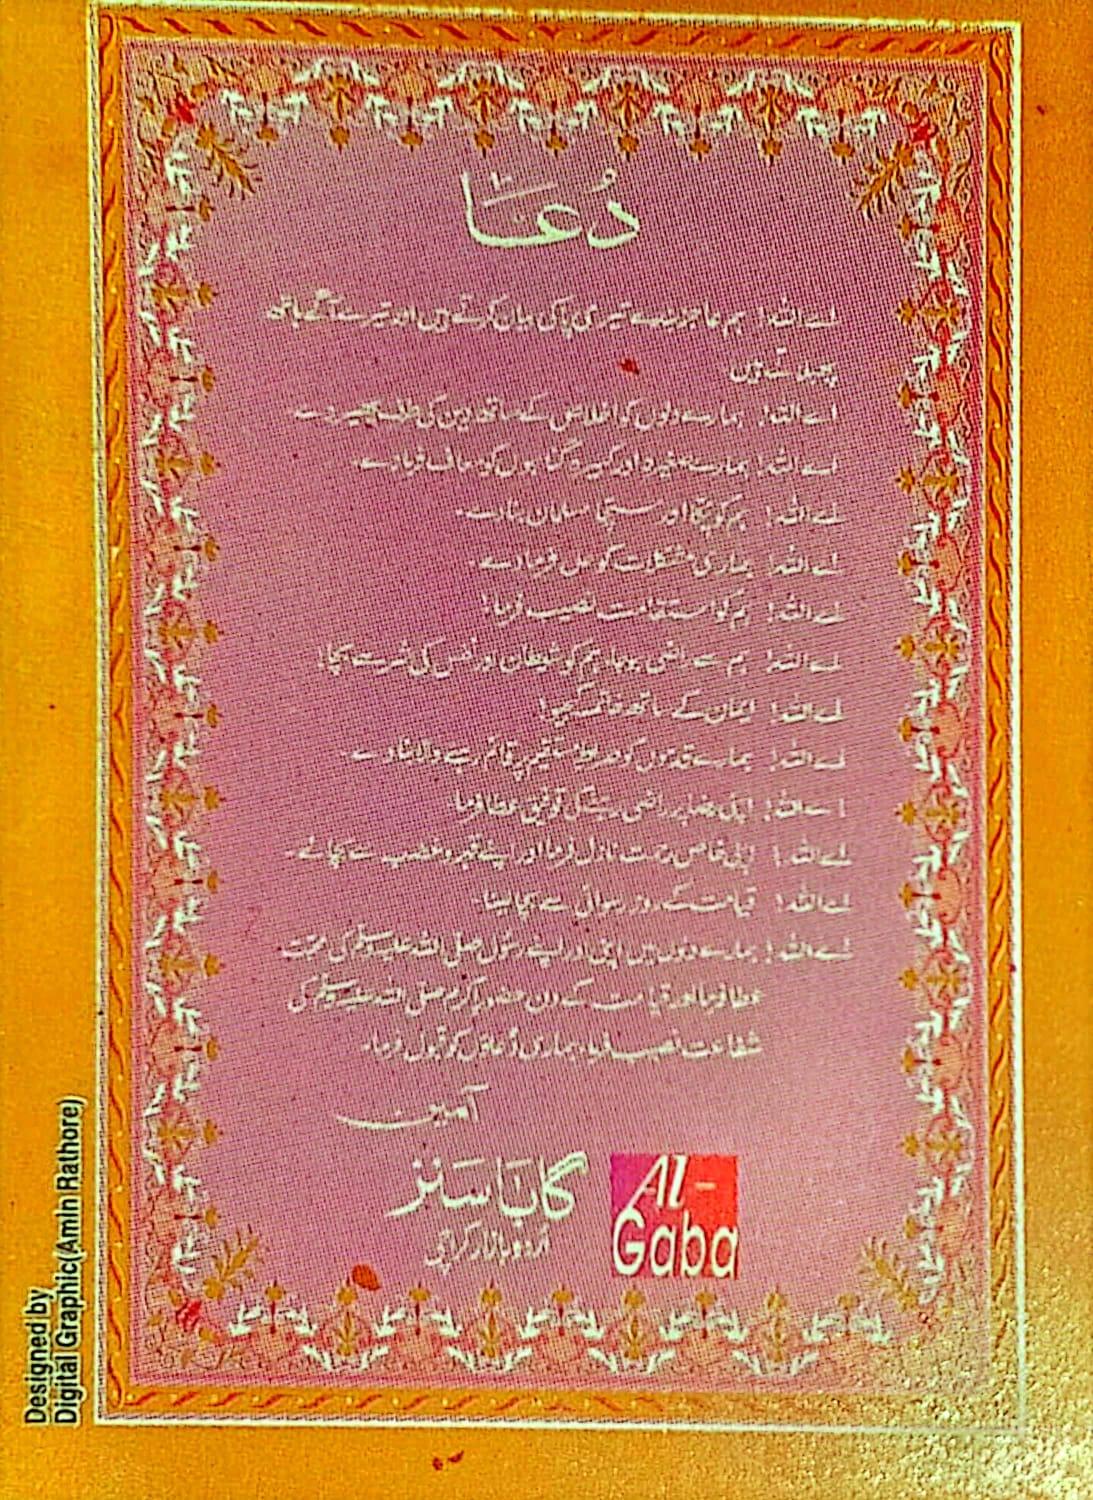 دُعَا
اے اللہ! ہم عاجزی سے تیری پاکی بیان کرتے ہیں اور تیرے آگے ہاتھ
پھیلاتے ہیں
اے اللہ! ہمارے دلوں کو اخلاص کے ساتھ دین کی طرف پھیر دے
اے اللہ! ہمارے صغیرہ اور کبیرہ گناہوں کو معاف فرما دے۔
اے اللہ! ہم کو پکا اور سچا مسلمان بنا دے۔
اے اللہ! ہماری مشکلات کو حل فرما دے۔
اے اللہ! ہم کو استقامت نصیب فرما!
اے اللہ! ہم سے راضی ہو جا، ہم کو شیطان اور نفس کی شر سے بچا!
اے اللہ! ایمان کے ساتھ خاتمہ کیجیو!
اے اللہ! ہمارے قدموں کو صراط مستقیم پر قائم رہنے والا بنا دے۔
اے اللہ! اپنی رضا پر راضی رہنے کی توفیق عطا فرما۔
اے اللہ! اپنی خاص رحمت نازل فرما اور اپنے قہر و غضب سے بچائے۔
اے اللہ! قیامت کے روز رسوائی سے بچا لینا۔
اے اللہ! ہمارے دلوں میں اپنی اور اپنے رسول صلی اللہ علیہ وسلم کی محبت
عطا فرما اور قیامت کے دن حضور پاکرم صلی اللہ علیہ وسلم کی
شفاعت نصیب فرما، ہماری دُعاؤں کو قبول فرما۔
آمین
گابا سنز
اُردو بازار کراچی
Al-
Gaba
Designed by
Digital Graphic(Amin Rathore)